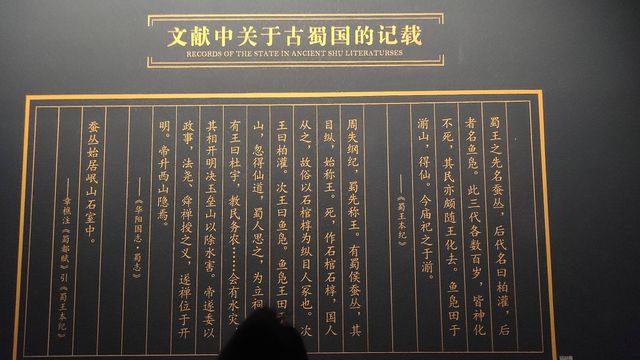 文献中关于古蜀国的记载
RECORDS OF THE STATE IN ANCIENT SHU LITERATURSES
蜀王之先名蚕丛，后代名曰柏灌，后
者名鱼凫。此三代各数百岁，皆神化
不死，其民亦颇随王化去。鱼凫田于
湔山，得仙。今庙祀之于湔。
——《蜀王本纪》
周失纲纪，蜀先称王。有蜀侯蚕丛，其
目纵，始称王。死，作石棺石椁，国人
从之，故俗以石棺椁为纵目人冢也。次
王曰柏灌。次王曰鱼凫。鱼凫王田于
山，忽得仙道，蜀人思之，为立祠
有王曰杜宇，教民务农……会有水灾
其相开明决玉垒山以除水害。帝遂委以
政事，法尧、舜禅授之义，遂禅位于开
明。帝升西山隐焉。
——《华阳国志·蜀志》
蚕丛始居岷山石室中。
——章樵注《蜀都赋》引《蜀王本纪》